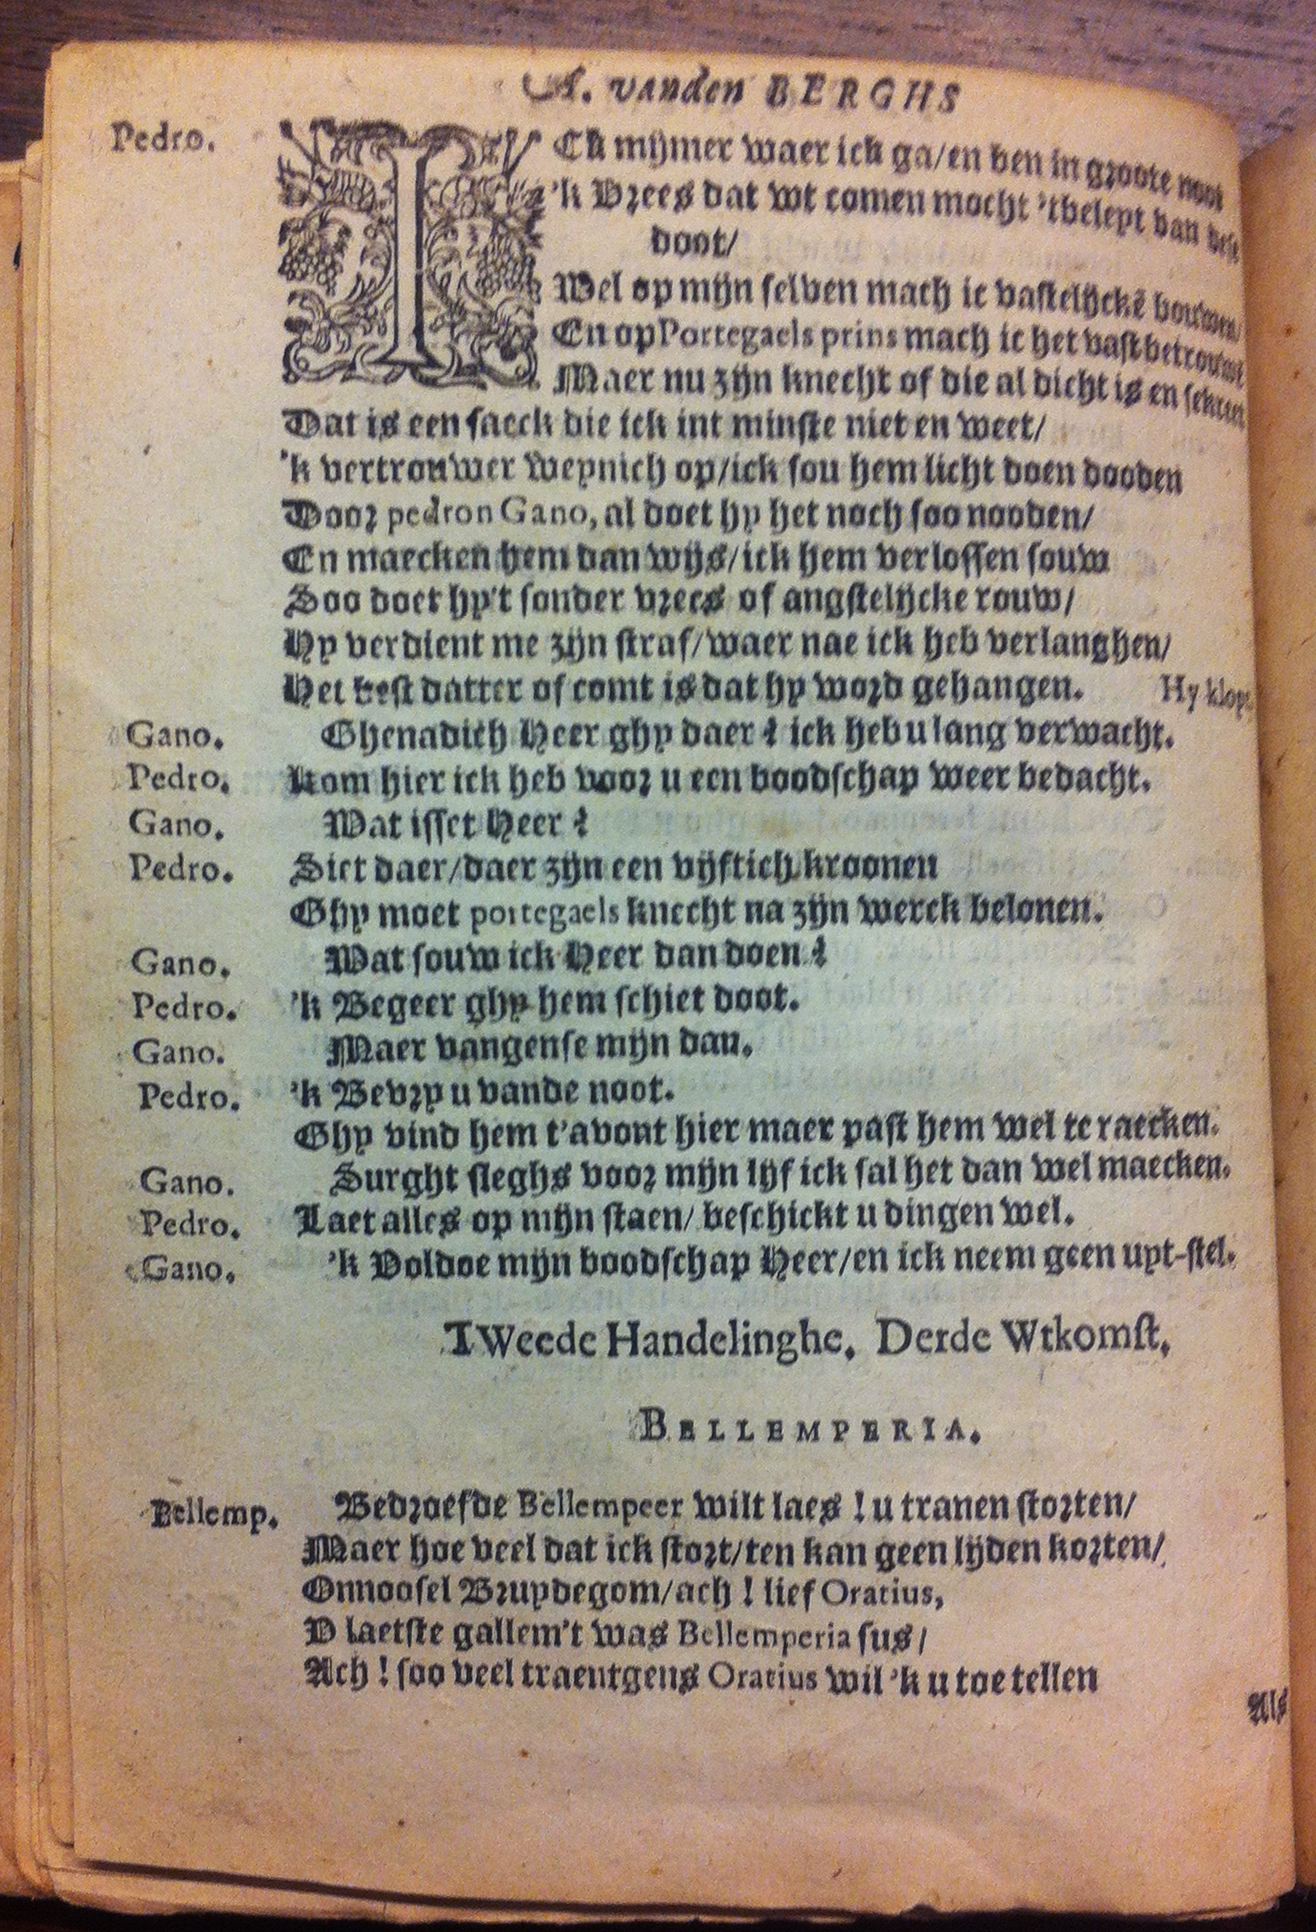 A. vanden BERGHS
Pedro. ICk mijmer waer ick ga/en ben in groote noot
'k Vrees dat wt comen mocht 'tbeleyt van dese
doot/
Wel op mijn selven mach ic vastelijckē bouwen/
En op Portegaels prins mach ic het vast betrouwē
Maer nu zijn knecht of die al dicht is en sekreet
Dat is een saeck die ick int minste niet en weet/
'k vertrouwer weynich op/ick sou hem licht doen dooden
Door pedron Gano, al doet hy het noch soo nooden/
En maecken hem dan wijs/ick hem verlossen souw
Soo doet hy't sonder vrees of angstelijcke rouw/
Hy verdient me zijn straf/waer nae ick heb verlanghen/
Het best datter of comt is dat hy word gehangen. Hy klopt
Gano. Ghenadich Heer ghy daer? ick heb u lang verwacht.
Pedro. kom hier ick heb voor u een boodschap weer bedacht.
Gano. Wat isset Heer?
Pedro. Siet daer/daer zijn een vijftich kroonen
Ghy moet portegaels knecht na zijn werck belonen.
Gano. Wat souw ick Heer dan doen?
Pedro. 'k Begeer ghy hem schiet doot.
Gano. Maer vangense mijn dan.
Pedro. 'k Bevry u vande noot.
Ghy vind hem t'avont hier maer past hem wel te raecken.
Gano. Surght sleghs voor mijn lijf ick sal het dan wel maecken.
Pedro. Laet alles op mijn staen/ beschickt u dingen wel.
Gano. 'k Voldoe mijn boodschap Heer/en ick neem geen uyt-stel.
TWeede Handelinghe. Derde Wtkomst.
BELLEMPERIA.
Bellemp. Bedroefde Bellempeer wilt laes! u tranen storten/
Maer hoe veel dat ick stort/ten kan geen lijden korten/
Onnoosel Bruydegom/ach! lief Oratius,
V laetste gallem't was Bellemperia sus/
Ach! soo veel traentgens Oratius wil 'k u toe tellen
Als